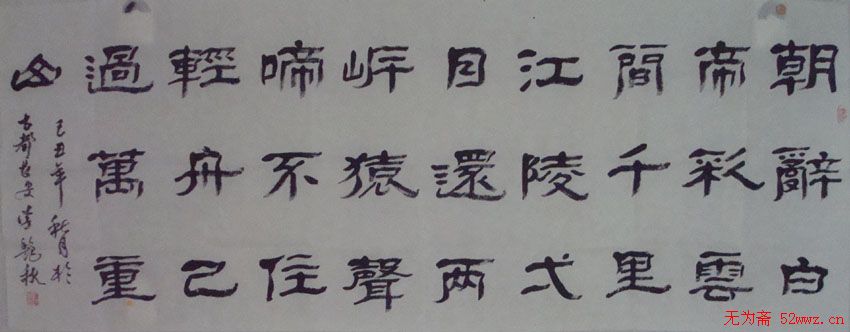 朝辭白
帝彩雲
間千里
江陵弌
日還兩
岸猿聲
啼不住
輕舟已
過萬重
山
己丑年秋月於
古都長安
无为斋 52wwz.cn